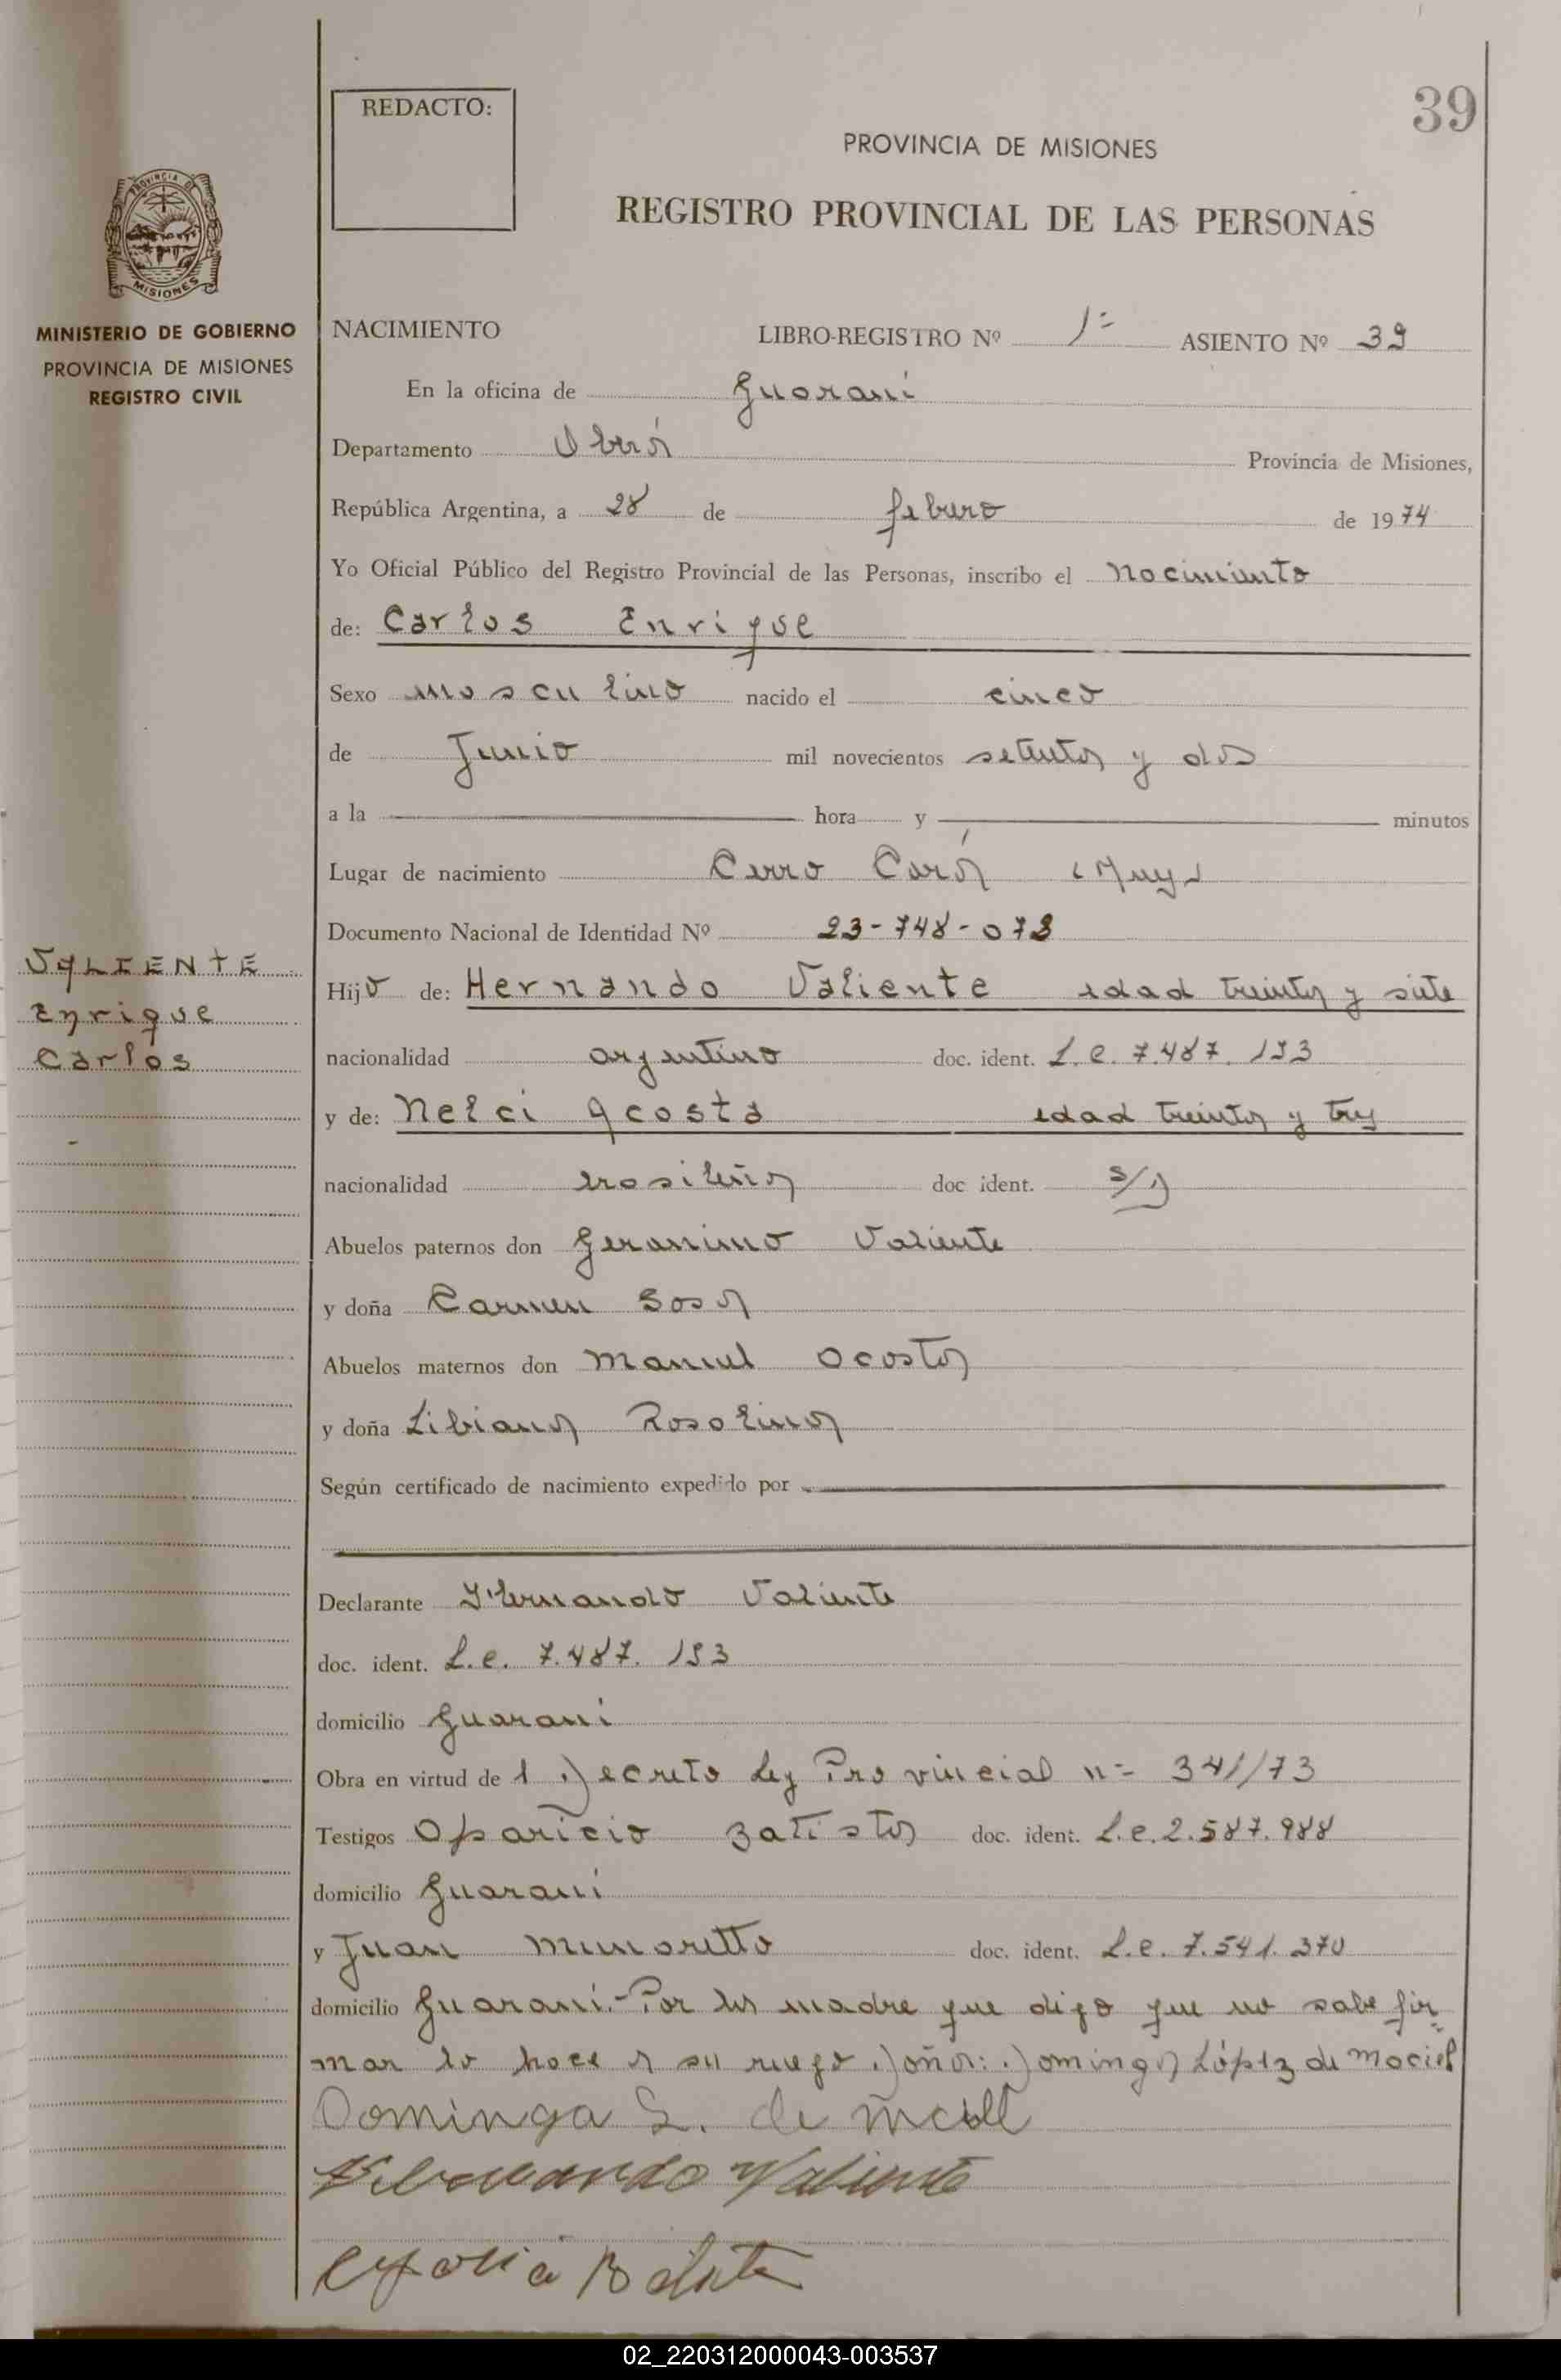 39
REDACTO:
PROVINCIA DE MISIONES
REGISTRO PROVINCIAL DE LAS PERSONAS
PROVINCIA DE
MISIONES
MINISTERIO DE GOBIERNO
PROVINCIA DE MISIONES
REGISTRO CIVIL
NACIMIENTO LIBRO-REGISTRO Nº 1º ASIENTO Nº 39
En la oficina de Guaraní
Departamento Oberá Provincia de Misiones,
República Argentina, a 28 de febrero de 1974
Yo Oficial Público del Registro Provincial de las Personas, inscribo el Nacimiento
de: Carlos Enrique
Sexo masculino nacido el cinco
de Junio mil novecientos setenta y dos
a la hora y minutos
Lugar de nacimiento Cerro Corá
Documento Nacional de Identidad Nº 23-748-073
VALIENTE
Enrique
Carlos
Hijo de: Hernando Valiente edad treinta y siete
nacionalidad argentino doc. ident. L.e. 7.487.193
y de: Nelci Acosta edad treinta y tres
nacionalidad brasileña doc ident.
Abuelos paternos don Geranimo Valiente
y doña Carmen Sosa
Abuelos maternos don Manuel Acosta
y doña Libiana Rosalina
Según certificado de nacimiento expedido por
Declarante Hernando Valiente
doc. ident. L.e. 7.487.193
domicilio Guaraní
Obra en virtud de l Decreto Ley Provincial nº 341/73
Testigos Aparicio Batista doc. ident. L.e. 2.587.988
domicilio Guaraní
y Juan doc. ident. L.e. 7.541.370
domicilio Guaraní.- Por la madre que digo que no sabe fir=
mar lo hace a su ruego Doña: Dominga López de Maciel
Dominga L. de
Hernando Valiente
02_220312000043-003537